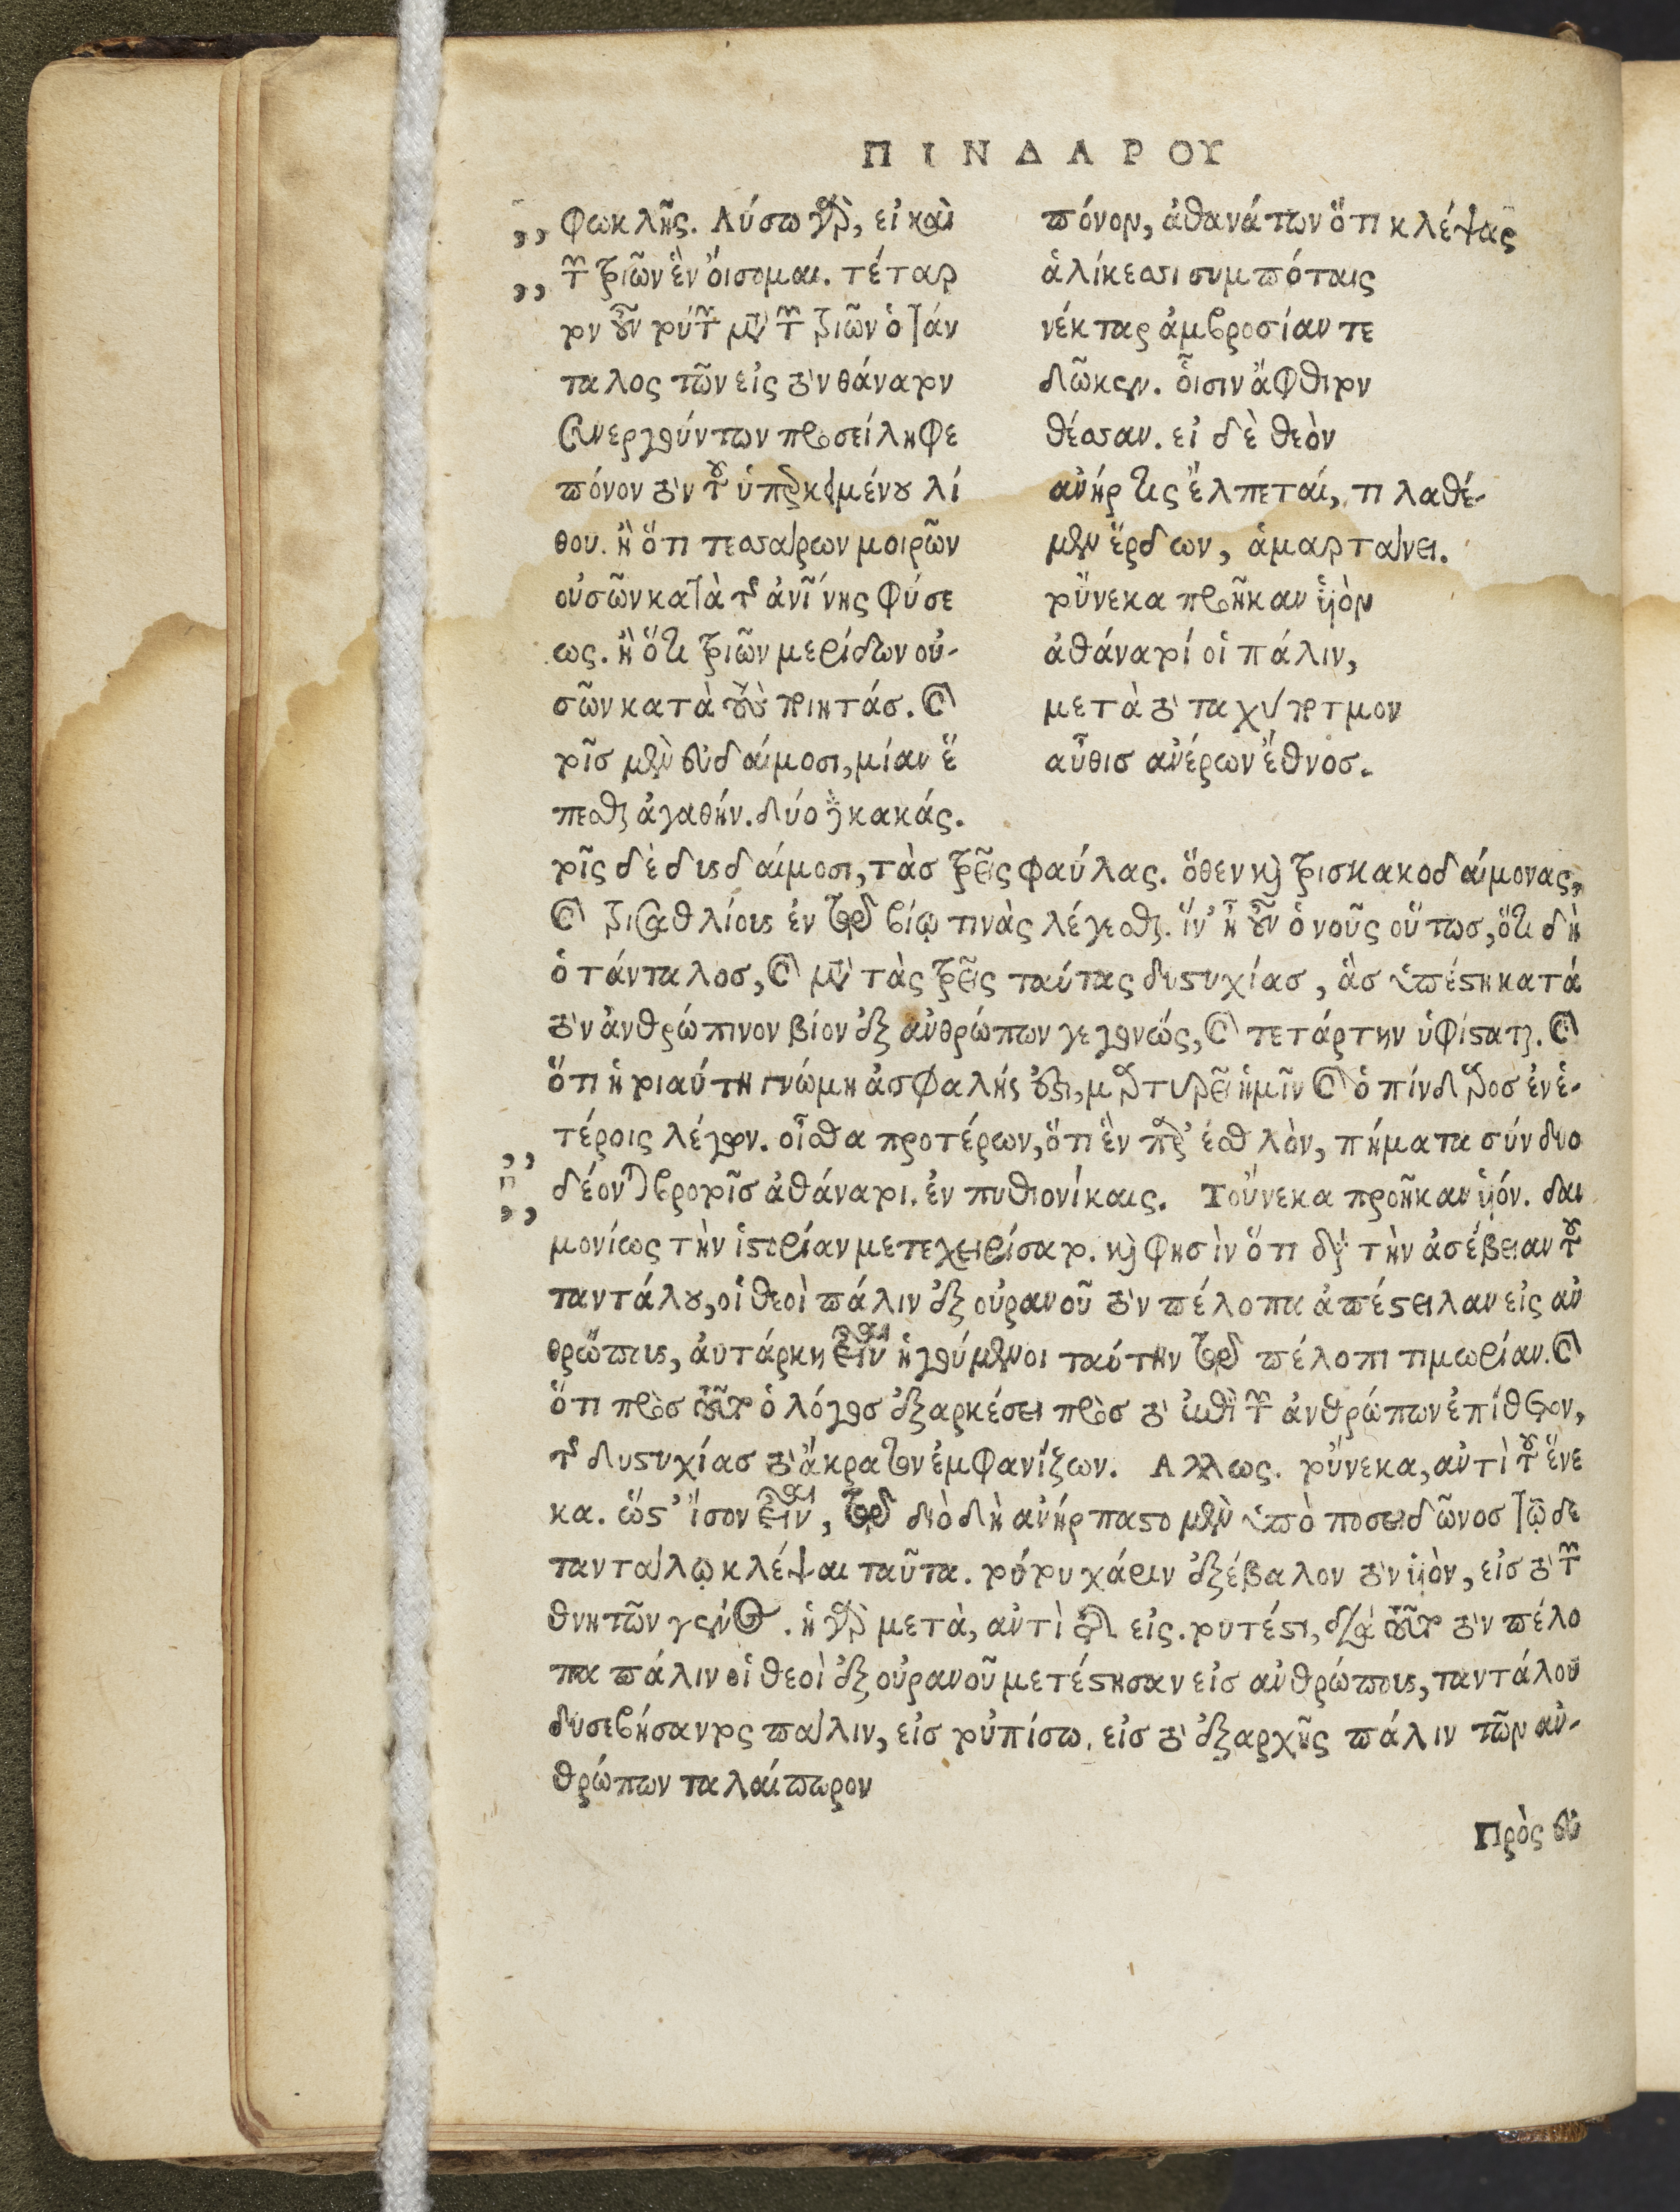 ΠΙΝΔΑΡΟΥ
,, φωκλῆς. Λύσω γὰρ, εἰ καὶ
,, τῶν τριῶν ἓν οἴσομαι. τέταρ
τον οὖν τούτων μετὰ τῶν τριῶν ὁ Τάν
ταλος τῶν εἰς τὸν θάνατον
συνεργούντων προσείληφε
πόνον τὸν τοῦ ὑπερκειμένου λί
θου. ἢ ὅτι τεσσάρων μοιρῶν
οὐσῶν κατὰ τῆς ἀνί̅νης φύσε
ως. ἢ ὅτι τριῶν μερίδων οὐ-
σῶν κατὰ τοὺς ποιητάς. καὶ
τοῖς μὲν εὐδαίμοσι, μίαν ἕ
πεσθαι ἀγαθήν. δύο δὲ κακάς.
πόνον, ἀθανάτων ὅτι κλέψας
ἁλίκεσσι συμπόταις
νέκταρ ἀμβροσίαν τε
δῶκεν. οἷσιν ἄφθιτον
θέσσαν. εἰ δὲ θεὸν
ἀνήρ τις ἔλπεταί, τι λαθέ-
μεν ἔρδων, ἁμαρτάνει.
τοὔνεκα προῆκαν υἱὸν
ἀθάνατοί οἱ πάλιν,
μετὰ τὸ ταχύποτμον
αὖθις ἀνέρων ἔθνος.
τοῖς δὲ δυσδαίμοσι, τὰς τρεῖς φαύλας. ὅθεν καὶ τρισκακοδαίμονας,
καὶ τρισαθλίους ἐν τῷ βίῳ τινὰς λέγεσθαι. ἵν' ᾖ οὖν ὁ νοῦς οὕτως, ὅτι δὴ
ὁ τάνταλος, καὶ μετὰ τὰς τρεῖς ταύτας δυστυχίας, ἃς ὑπέστη κατὰ
τὸν ἀνθρώπινον βίον ἐξ ἀνθρώπων γεγονώς, καὶ τετάρτην ὑφίσταται. καὶ
ὅτι ἡ τοιαύτη γνώμη ἀσφαλής ἐστι, μαρτυρεῖ ἡμῖν καὶ ὁ πίνδαρος ἐν ἑ-
,, τέροις λέγων. οἶσθα προτέρων, ὅτι ἓν παρ' ἐσθλὸν, πήματα σύνδυο
,, δέονται βροτοῖς ἀθάνατοι. ἐν πυθιονίκαις. Τοὔνεκα προῆκαν υἱόν. δαι
μονίως τὴν ἱστορίαν μετεχειρίσατο. καὶ φησὶν ὅτι διὰ τὴν ἀσέβειαν τοῦ
ταντάλου, οἱ θεοὶ πάλιν ἐξ οὐρανοῦ τὸν πέλοπα ἀπέστειλαν εἰς ἀν
θρώπους, αὐτάρκη εἶναι ἡγούμενοι ταύτην τῷ πέλοπι τιμωρίαν. καὶ
ὅτι πρὸς τοῦτο ὁ λόγος ἐξαρκέσει πρὸς τὸ ἐπὶ τῶν ἀνθρώπων ἐπίθετον,
τῆς δυστυχίας τὸ ἄκρατον ἐμφανίζων. Αλλως. τοὔνεκα, ἀντὶ τοῦ ἕνε
κα. ὥστ' ἴσον εἶναι, τῷ διὸ δὴ ἀνήρπαστο μὲν ὑπὸ ποσειδῶνος τῷ δε
ταντάλῳ κλέψαι ταῦτα. τούτου χάριν ἐξέβαλον τὸν υἱὸν, εἰς τὸ τῶν
θνητῶν γένος. ἡ γὰρ μετὰ, ἀντὶ τῆς εἰς. τουτέστι, διὰ τοῦτο τὸν πέλο
πα πάλιν οἱ θεοὶ ἐξ οὐρανοῦ μετέστησαν εἰς ἀνθρώπους, ταντάλου
δυσεβήσαντος πάλιν, εἰς τοὐπίσω. εἰς τὸ ἐξαρχῆς πάλιν τῶν ἀν-
θρώπων ταλαίπωρον
Πρὸς εὐ